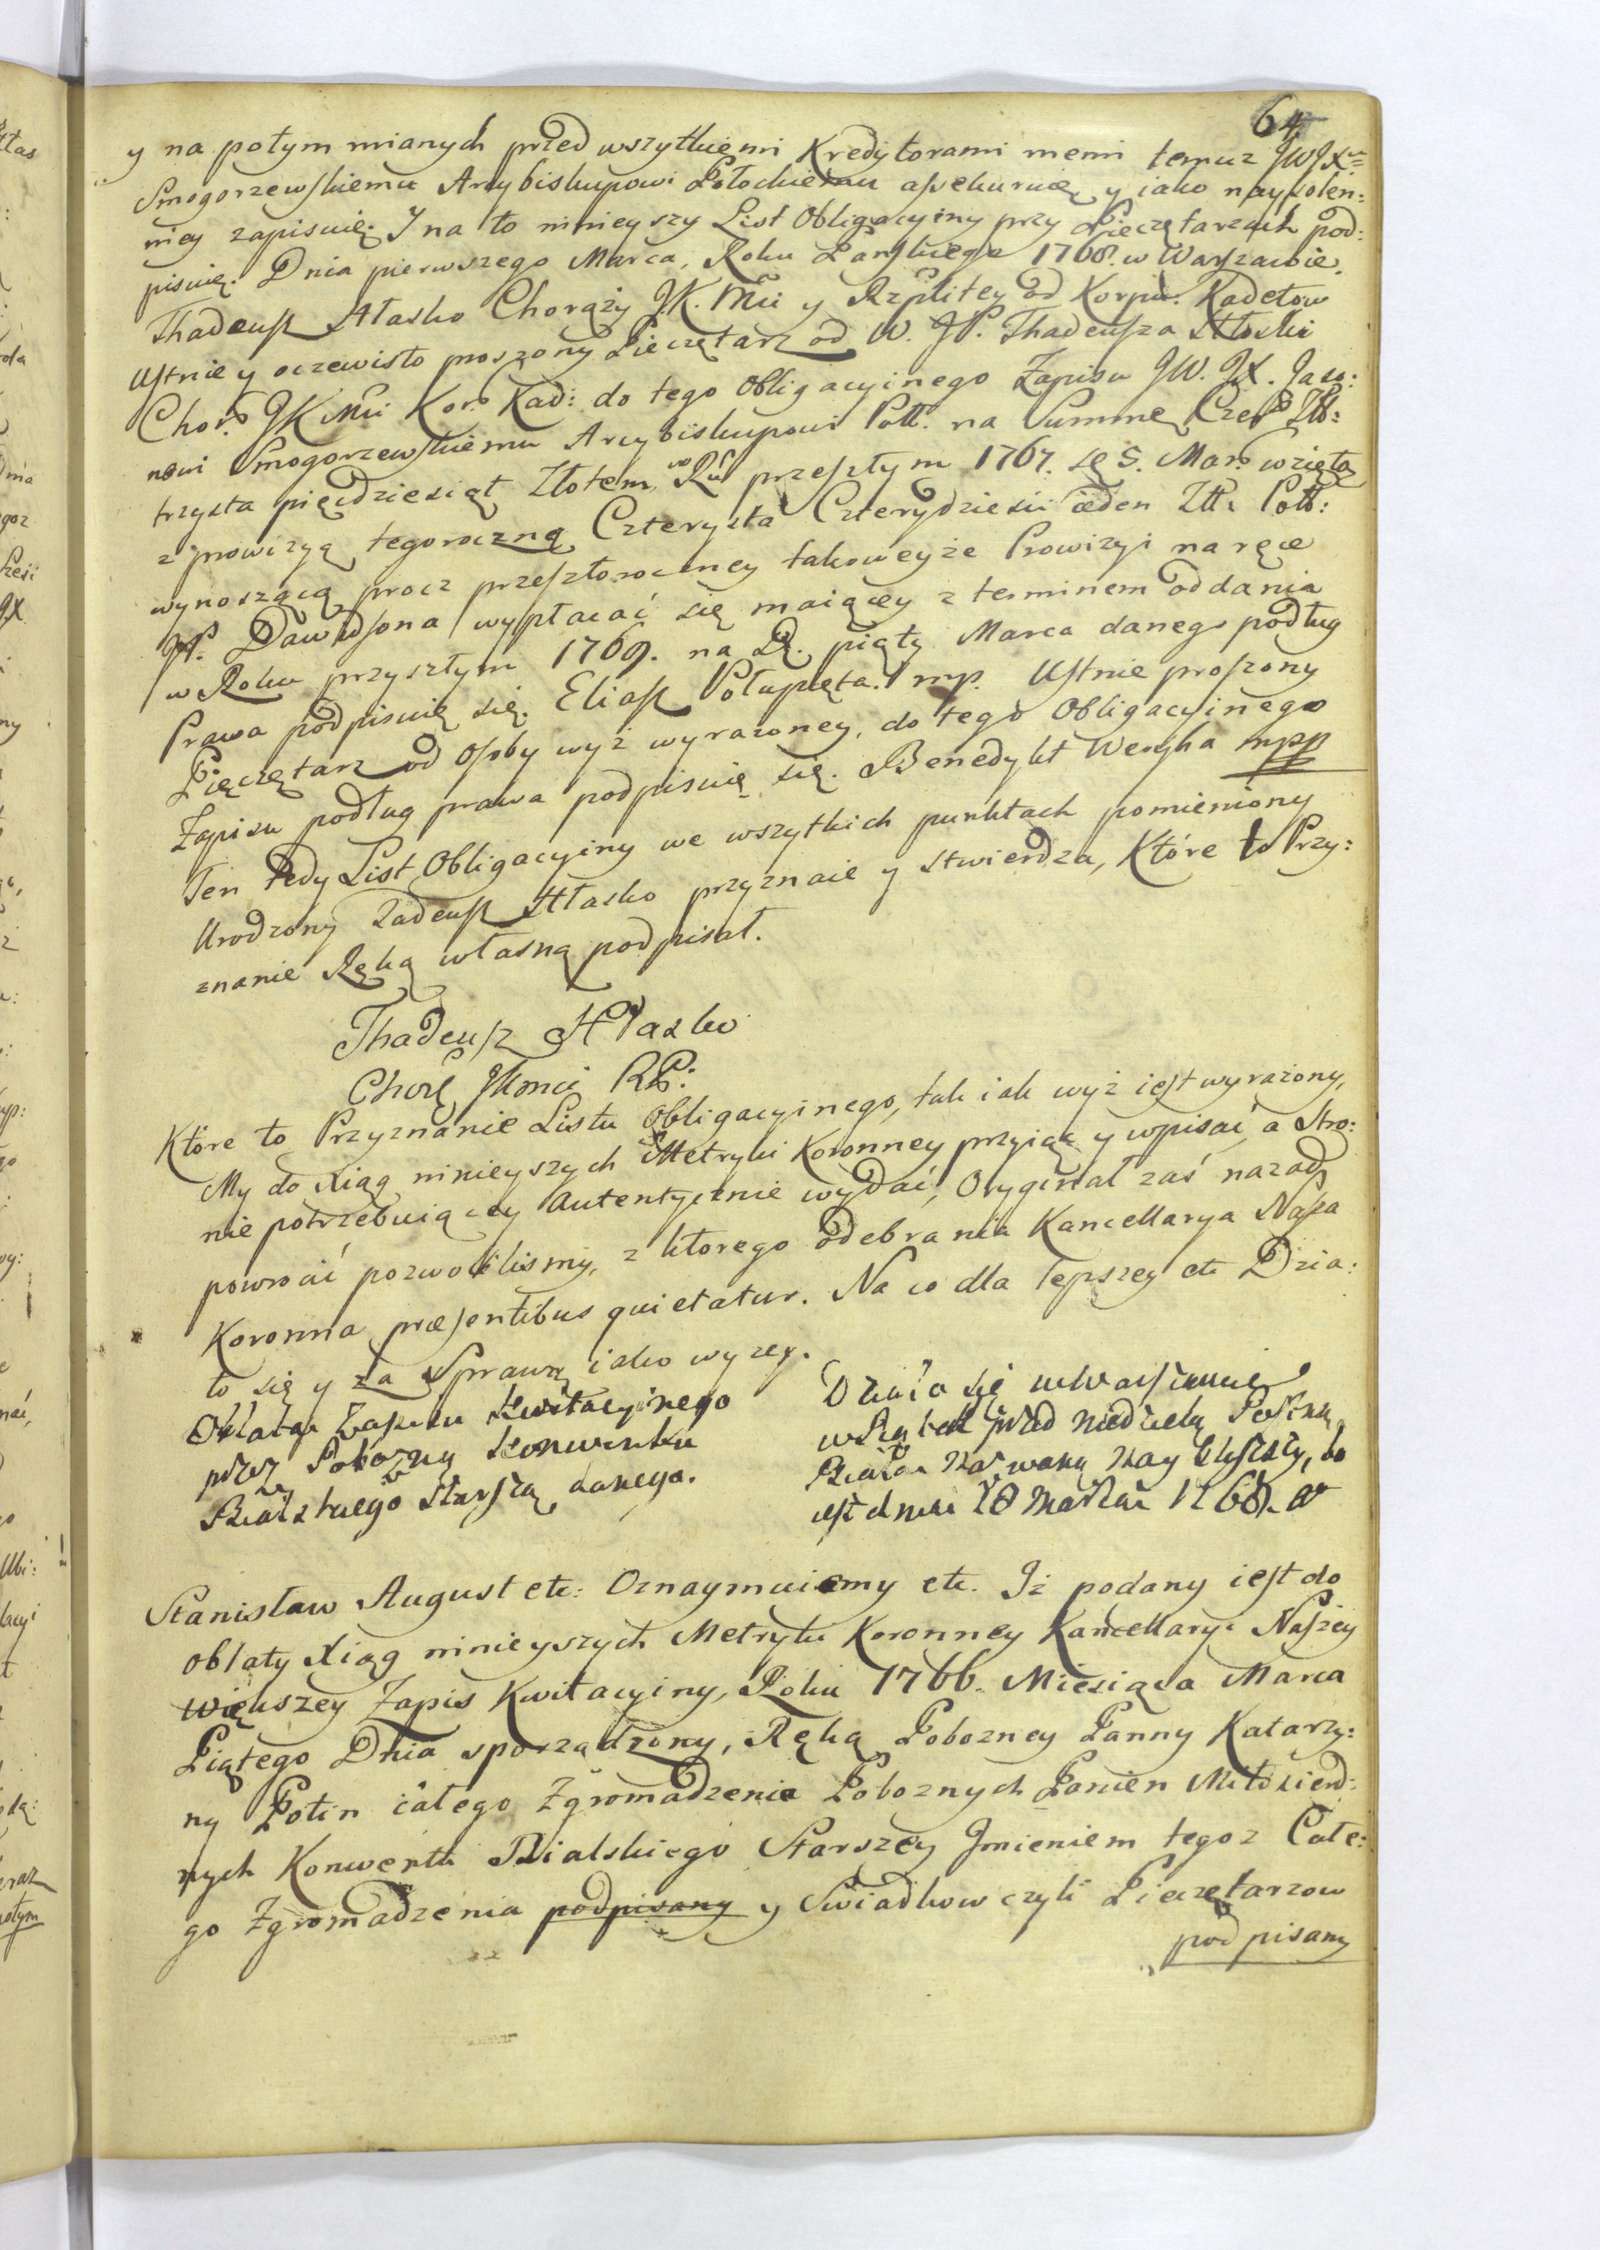 64
y na potym mianych przed wszytkiemi Kredytorami memi temuz JWJX
Smogorzewskiemu Arcybiskupowi Połockiemu assekuruię y iako naysolen:
niey zapisuię. J na to ninieyszy List Obligacyiny przy Pieczętarzach pod:
pisuię. Dnia pierwszego Marca, Roku Pańskiego 1768. w Warszawie.
Thadeusz Hłasko Chorąży JK. Mci y Rzplitey od Korpu: Kadetow
Ustnie y oczewisto proszony Pieczętarz od W. JP. Thadeusza Hłaski
Chor: JK Mci Kor: Kad: do tego Obligacyinego Zapisu JW. JX. Jaso:
nowi Smogorzewskiemu Arcybiskupowi Poll. na Summę Czer Zł:
trzysta pięcdziesiąt Złotem w Ru przeszłym 1767. 5. Mar. wziętą
z prowizyą tegoroczną Czterysta Czterydziesci ieden Zł: Poll:
wynoszącą procz przeszłoroczney takoweyże Prowizyi na ręce
JP. Dawidsona wypłacać się maiącey z terminem oddania
w Roku przyszłym 1769. na D. piąty Marca danego podług
Prawa podpisuię się. Eliasz Połupięta. mp. Ustnie proszony
Pieczętarz od Osoby wyż wyrażoney, do tego Obligacyinego
Zapisu podług prawa podpisuię się. Benedykt Weryha mpp
Ten tedy List Obligacyiny we wszytkich punktach pomieniony
Urodzony Tadeusz Hłasko przyznaie y stwierdza, Które to Przy:
znanie Ręką własną podpisał.
Thadeusz Hłasko
Chorą JKmci RP:
Które to Przyznanie Listu Obligacyinego, tak iak wyż iest wyrażony,
My do Xiąg ninieyszych Metryki Koronney przyiąć y wpisać, a Stro:
nie potrzebuiącey Autentycznie wydać, Oryginał zaś nazad
powrocić pozwoliliśmy, z ktorego odebrania Kancellarya Nasza
Koronna præsentibus quietatur. Na co dla lepszey etc Dzia:
ło się y za Sprawą iako wyzey.
Oblata Zapisu Kwitacyinego
przez Pobożną Konwentu
Bialskiego Starszą danego.
Działo się w Warszawie
w Piątek przed Niedzielą Postną
nazwaną, to
iest dnia 18 Marca 1768. R
Stanisław August etc: Oznaymuiemy etc. Jż podany iest do
oblaty Xiąg ninieyszych Metryki Koronney Kancellaryi Naszey
większey Zapis Kwitacyiny, Roku 1766. Miesiąca Marca
Piątego Dnia sporządzony, Ręką Pobozney Panny Katarzy:
ny Potin całego Zgromadzenia Poboznych Panien Miłosierd:
nych Konwentu Bialskiego Starszey Jmieniem tegoz Całe:
go Zgromadzenia podpisany y Swiadkow czyli Pieczętarzow
podpisany